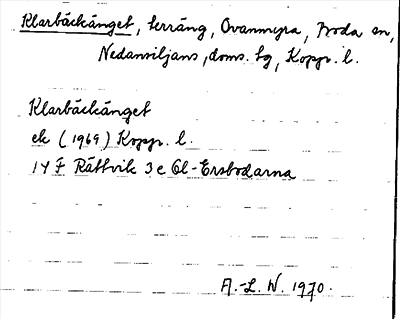 Klarbäckänget, terräng, Ovanmyra, Boda sn,
Nedansiljans, doms. lg, Kopp. l.
Klarbäckänget
ek (1969) Kopp. l.
14 F Rättvik 3 e Ol-Ersbodarna
A.-L. W. 1970.